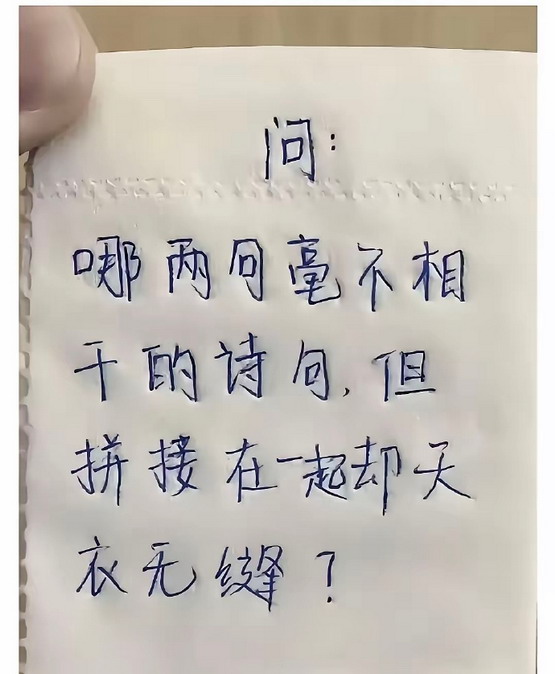 问:
哪两句毫不相
干的诗句,但
拼接在一起却天
衣无缝?